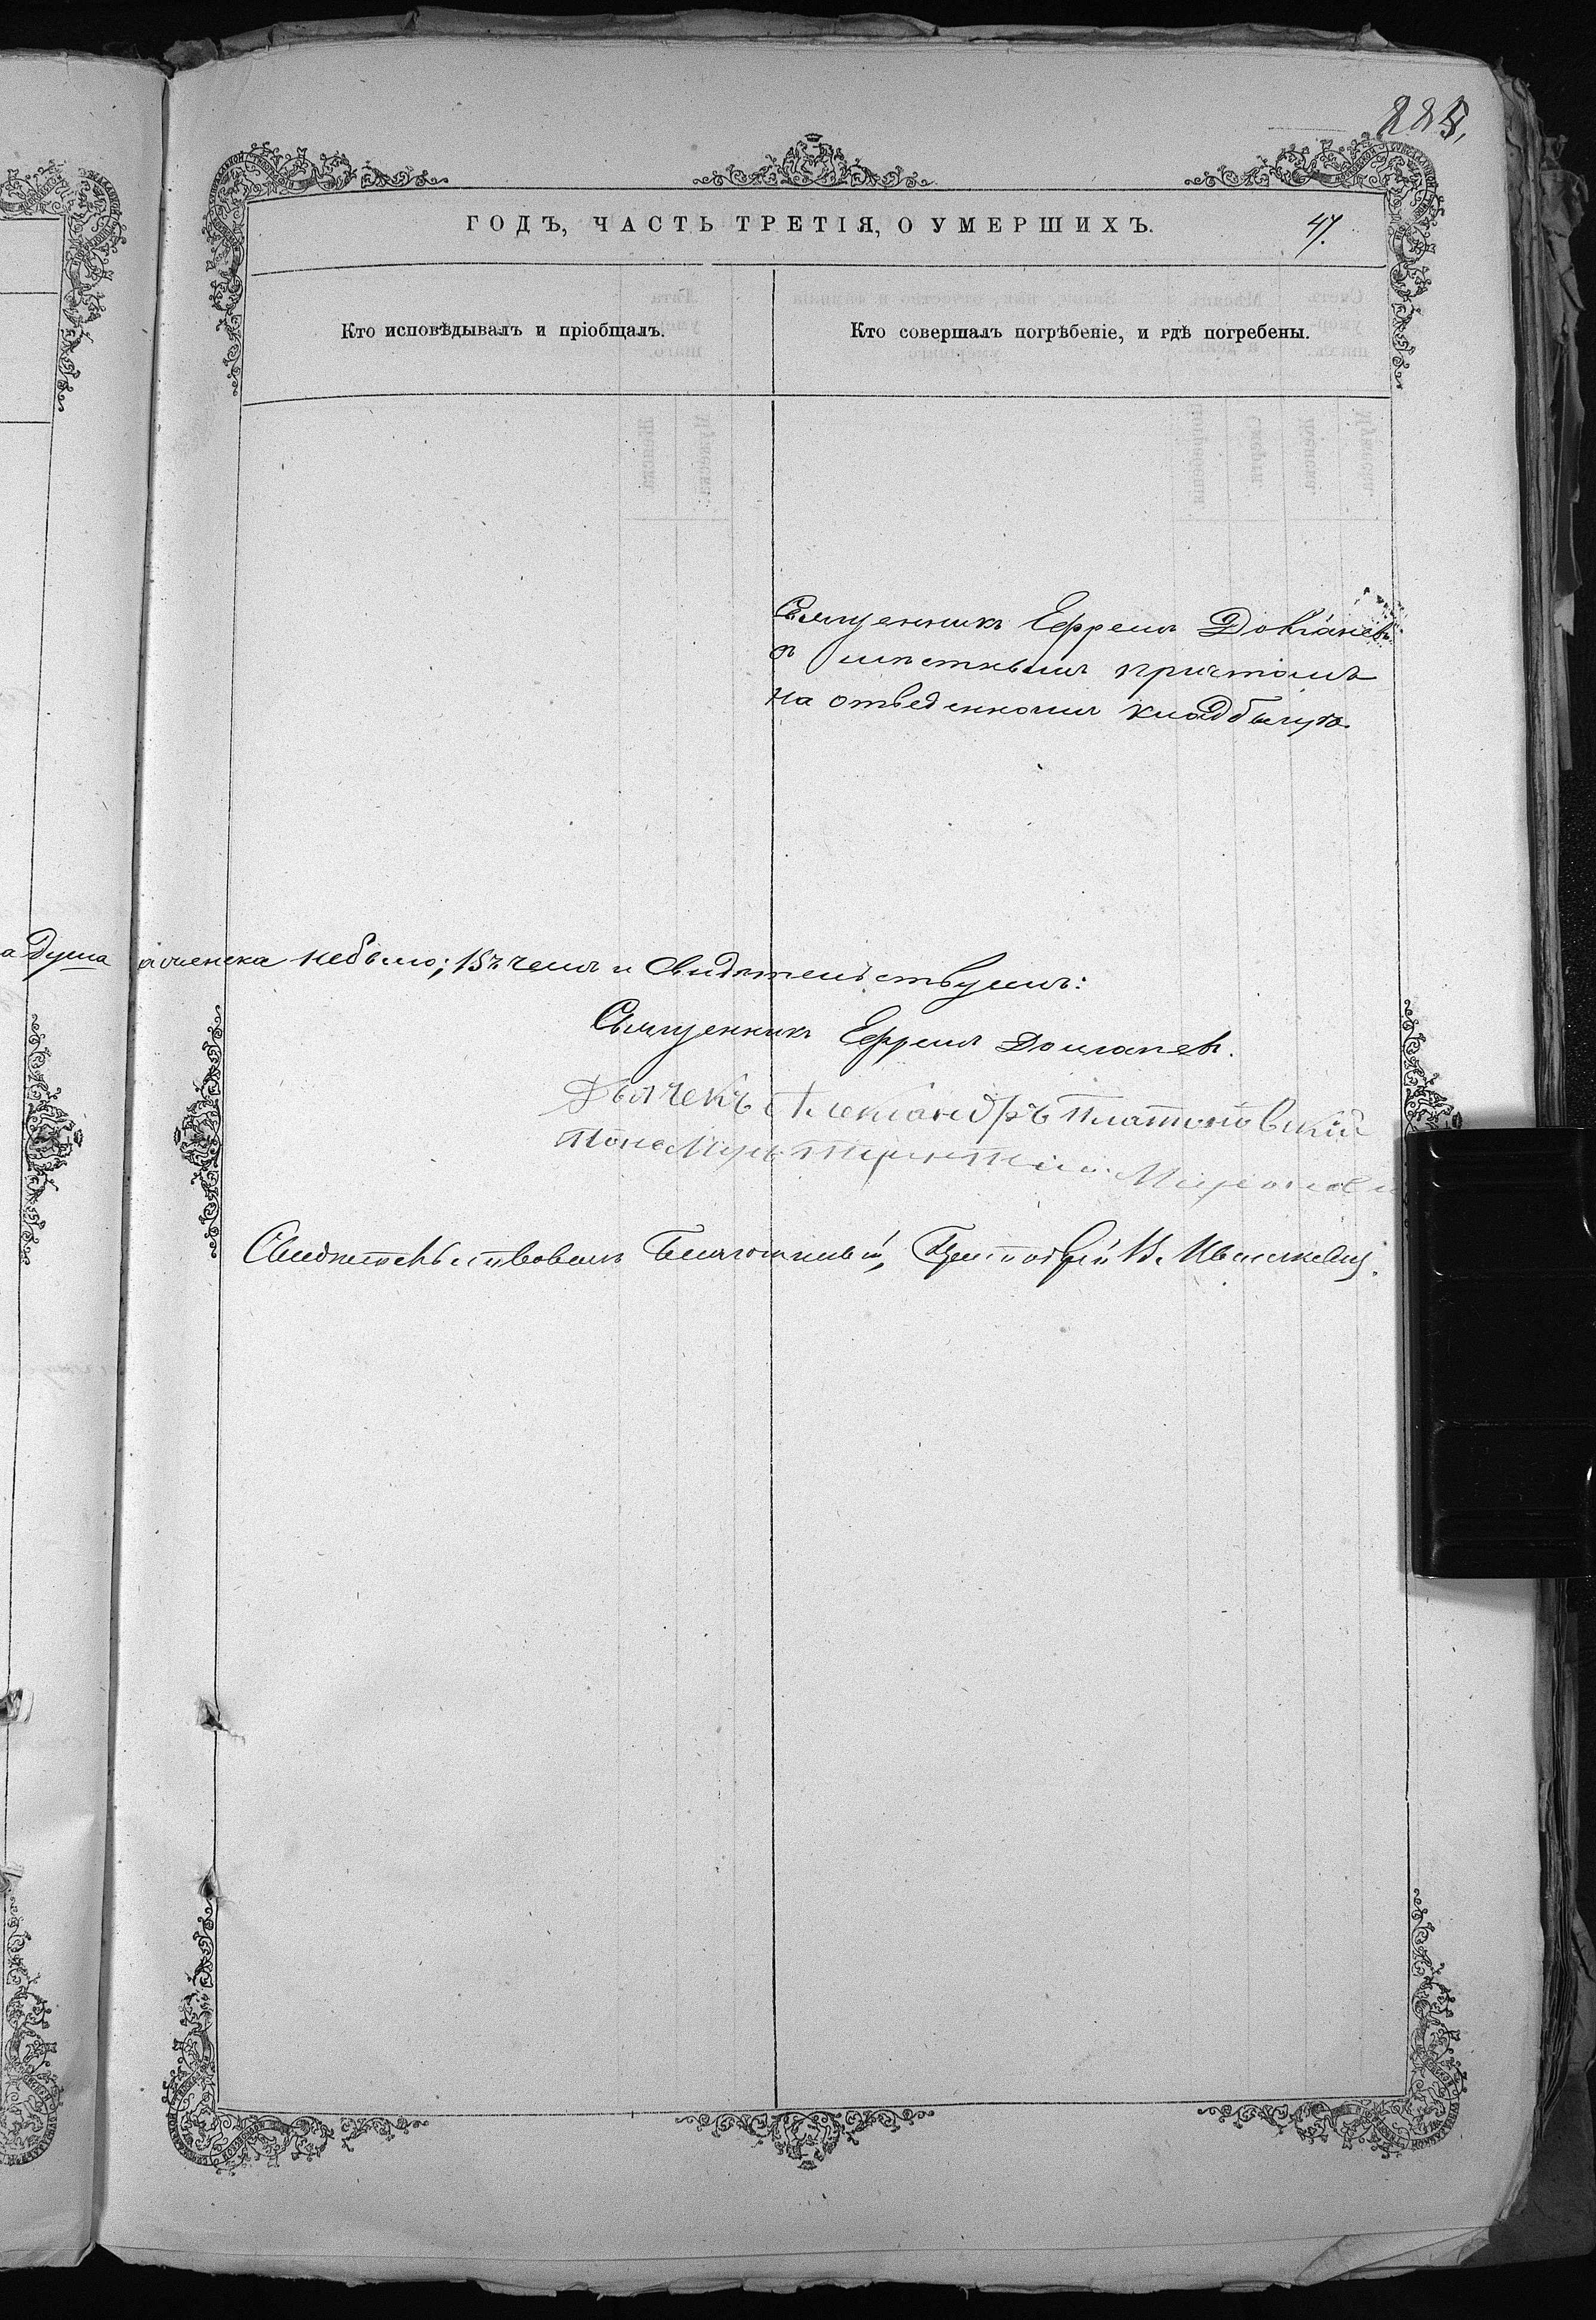 225,
ГОДЪ, ЧАСТЬ ТРЕТІЯ, О УМЕРШИХЪ.
47.
Кто исповѣдывалъ и пріобщалъ.
Кто совершалъ погрѣбеніе, и гдѣ погребены.
Священникъ Ефремъ
съ мѣстнымъ причтомъ
на отведенномъ кладбищѣ.
а душа
а женска небыло; въ чемъ и свидѣтельствуемъ:
Священникъ Ефремъ
Дьячекъ Александръ Платоновскій
Пономарь Терентій
Свидѣтельствовалъ Благочинный,